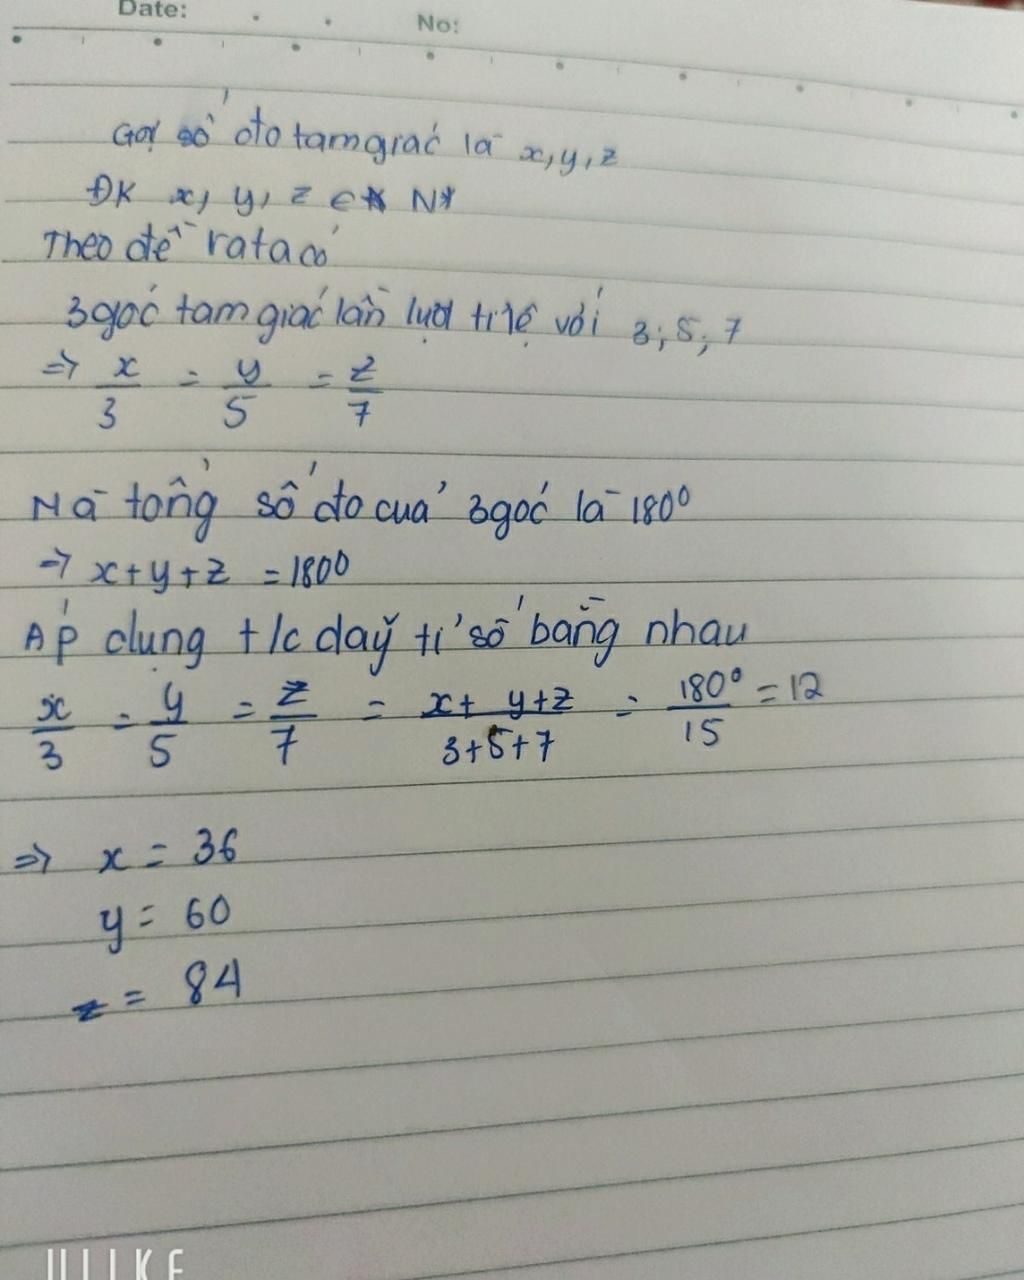 Date:
No:
Gọi số đo tam giác là x, y, z
ĐK x, y, z ∈ N*
Theo đề ra ta có
3 góc tam giác lần lượt tỉ lệ với 3; 5; 7
=> x/3 = y/5 = z/7
Mà tổng số đo của 3 góc là 180°
=> x + y + z = 180°
Áp dụng t/c dãy tỉ số bằng nhau
x/3 = y/5 = z/7 = x + y + z / 3+5+7 = 180°/15 = 12
=> x = 36
y = 60
z = 84